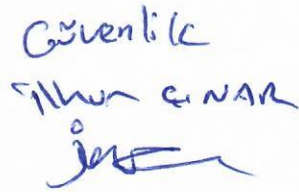 Güvenlik
İlhan ÇINAR